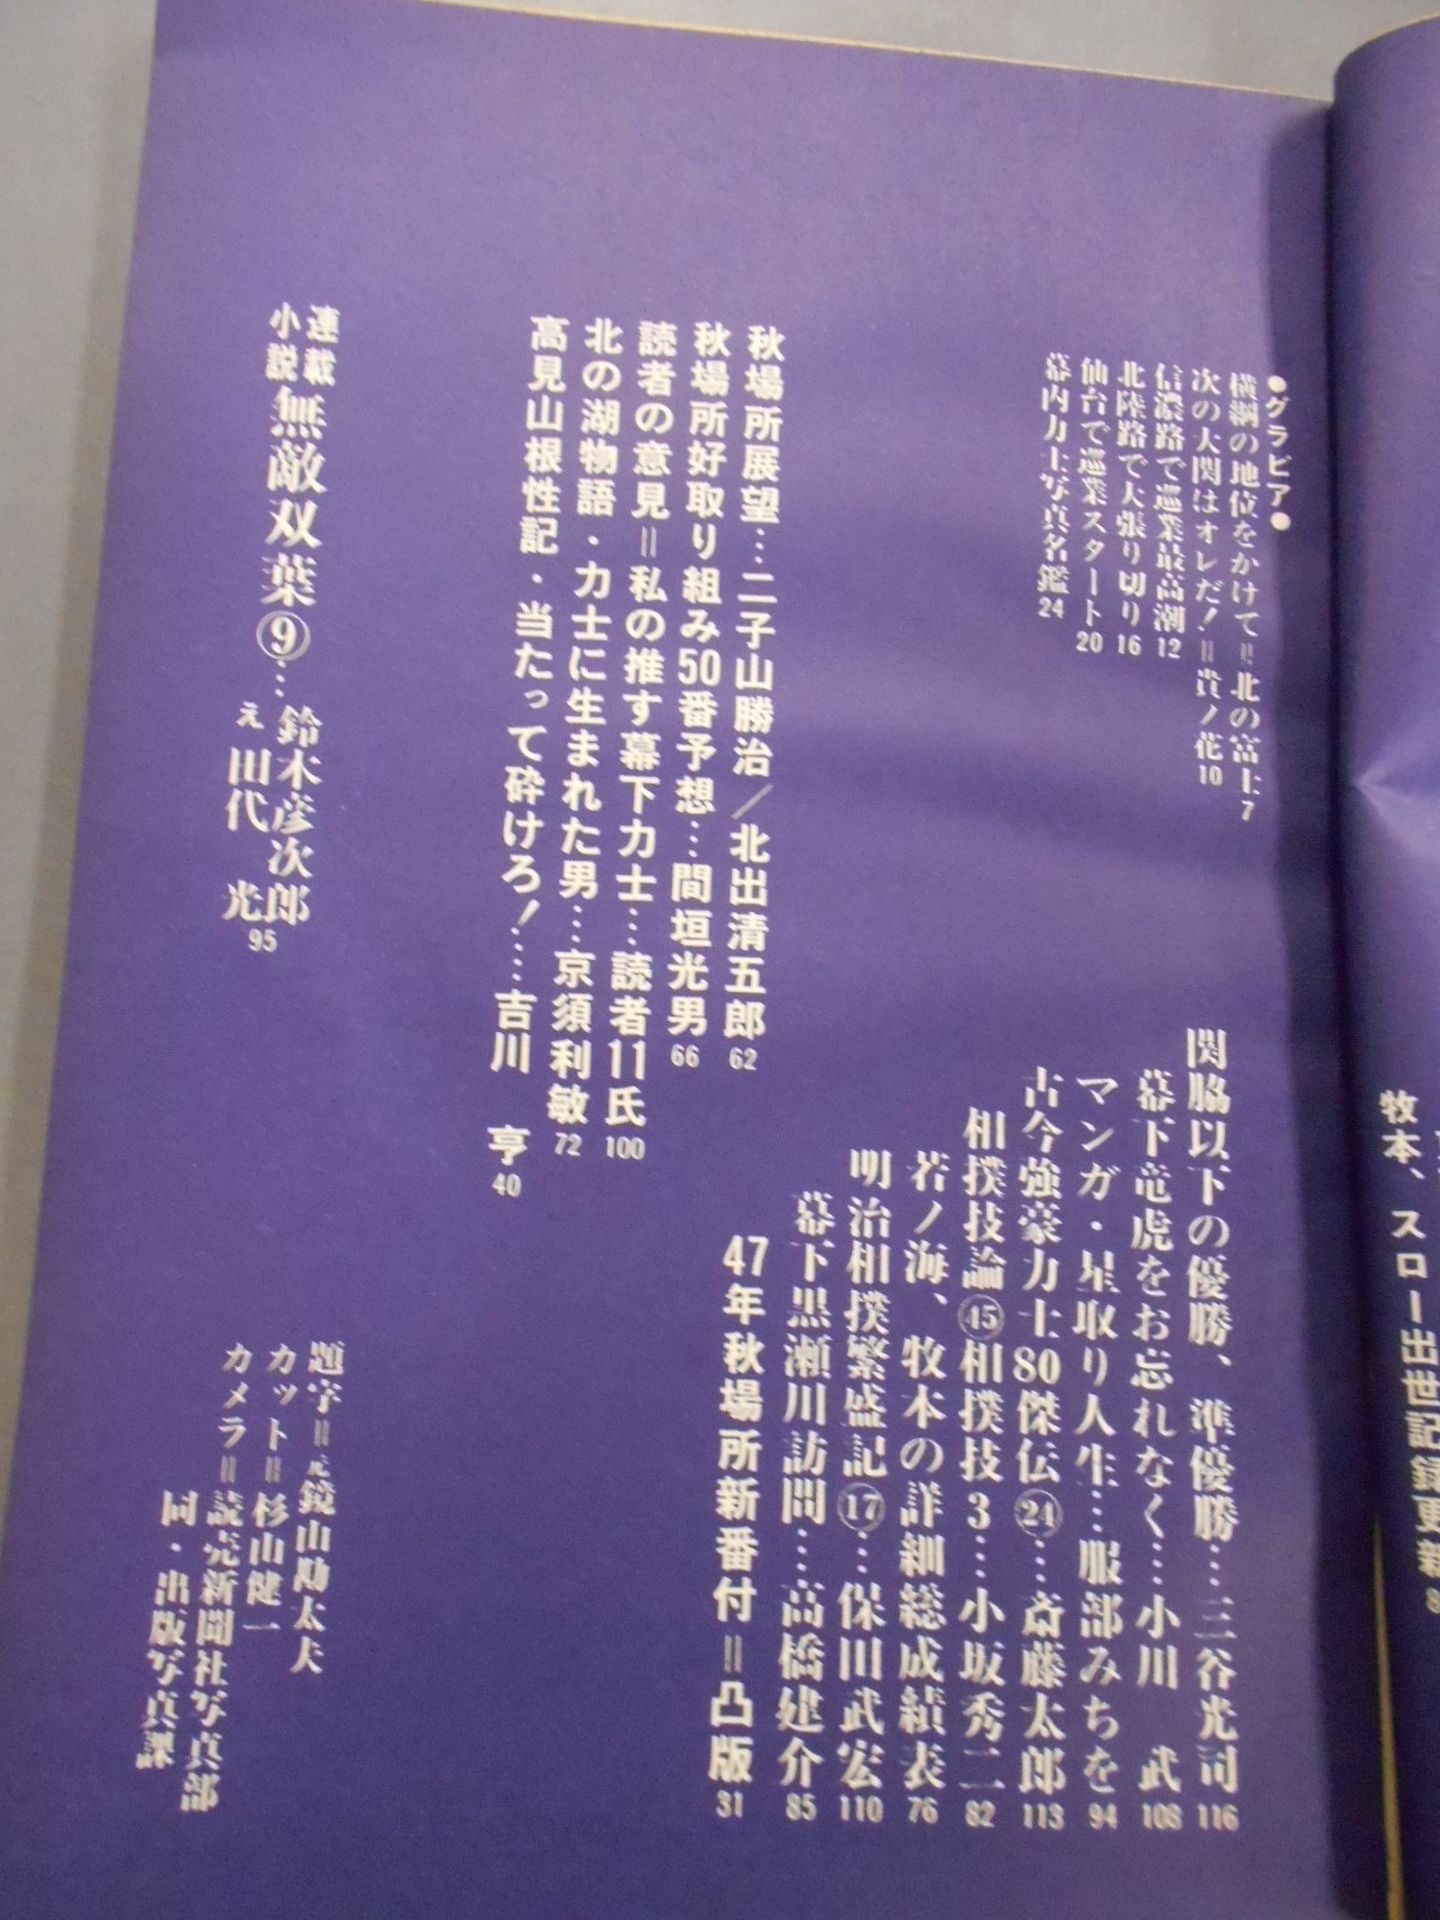 牧本、スロー出世記録更新
●グラビア●
横綱の地位をかけて＝北の富士7
次の大関はオレだ！＝貴ノ花10
信濃路で巡業最高潮12
北陸路で大張り切り16
仙台で巡業スタート20
幕内力士写真名鑑24
関脇以下の優勝、準優勝…三谷光司116
幕下竜虎をお忘れなく…小川　武108
マンガ・星取り人生…服部みちを94
古今強豪力士80傑伝㉔…斎藤太郎113
相撲技論㊺相撲技3…小坂秀二82
若ノ海、牧本の詳細総成績表76
明治相撲繁盛記⑰…保田武宏110
幕下黒瀬川訪問…高橋建介85
47年秋場所新番付＝凸版31
秋場所展望…二子山勝治／北出清五郎62
秋場所好取り組み50番予想…間垣光男66
読者の意見＝私の推す幕下力士…読者11氏100
北の湖物語・力士に生まれた男…京須利敏72
高見山根性記・当たって砕けろ！…吉川　亨40
連載小説 無敵双葉⑨…鈴木彦次郎
え 田代　光95
題字＝元鏡山勘太夫
カット＝杉山健一
カメラ＝読売新聞社写真部
同・出版写真課